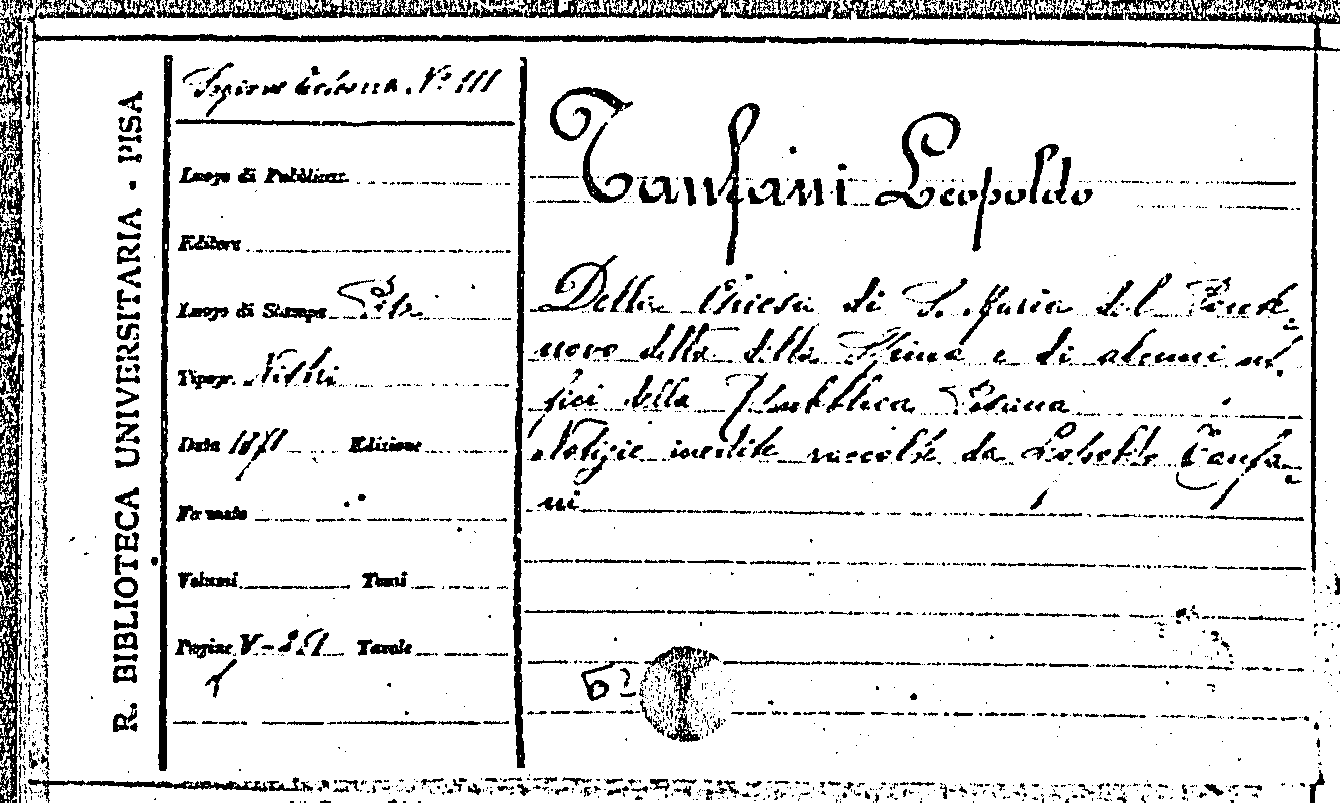 R. BIBLIOTECA UNIVERSITARIA - PISA
N° 111
Luogo di Pubblicaz.
Editore
Luogo di Stampa Pisa
Tipogr. Nistri
Data 1871 Edizione
Formato
Volumi Tomi
Pagine V-251 Tavole
Tanfani Leopoldo
Della Chiesa di S. Maria del Ponte-
novo detta della Spina e di alcuni uf-
fici della Repubblica Pisana
Notizie inedite raccolte da Leopoldo Tanfa-
ni